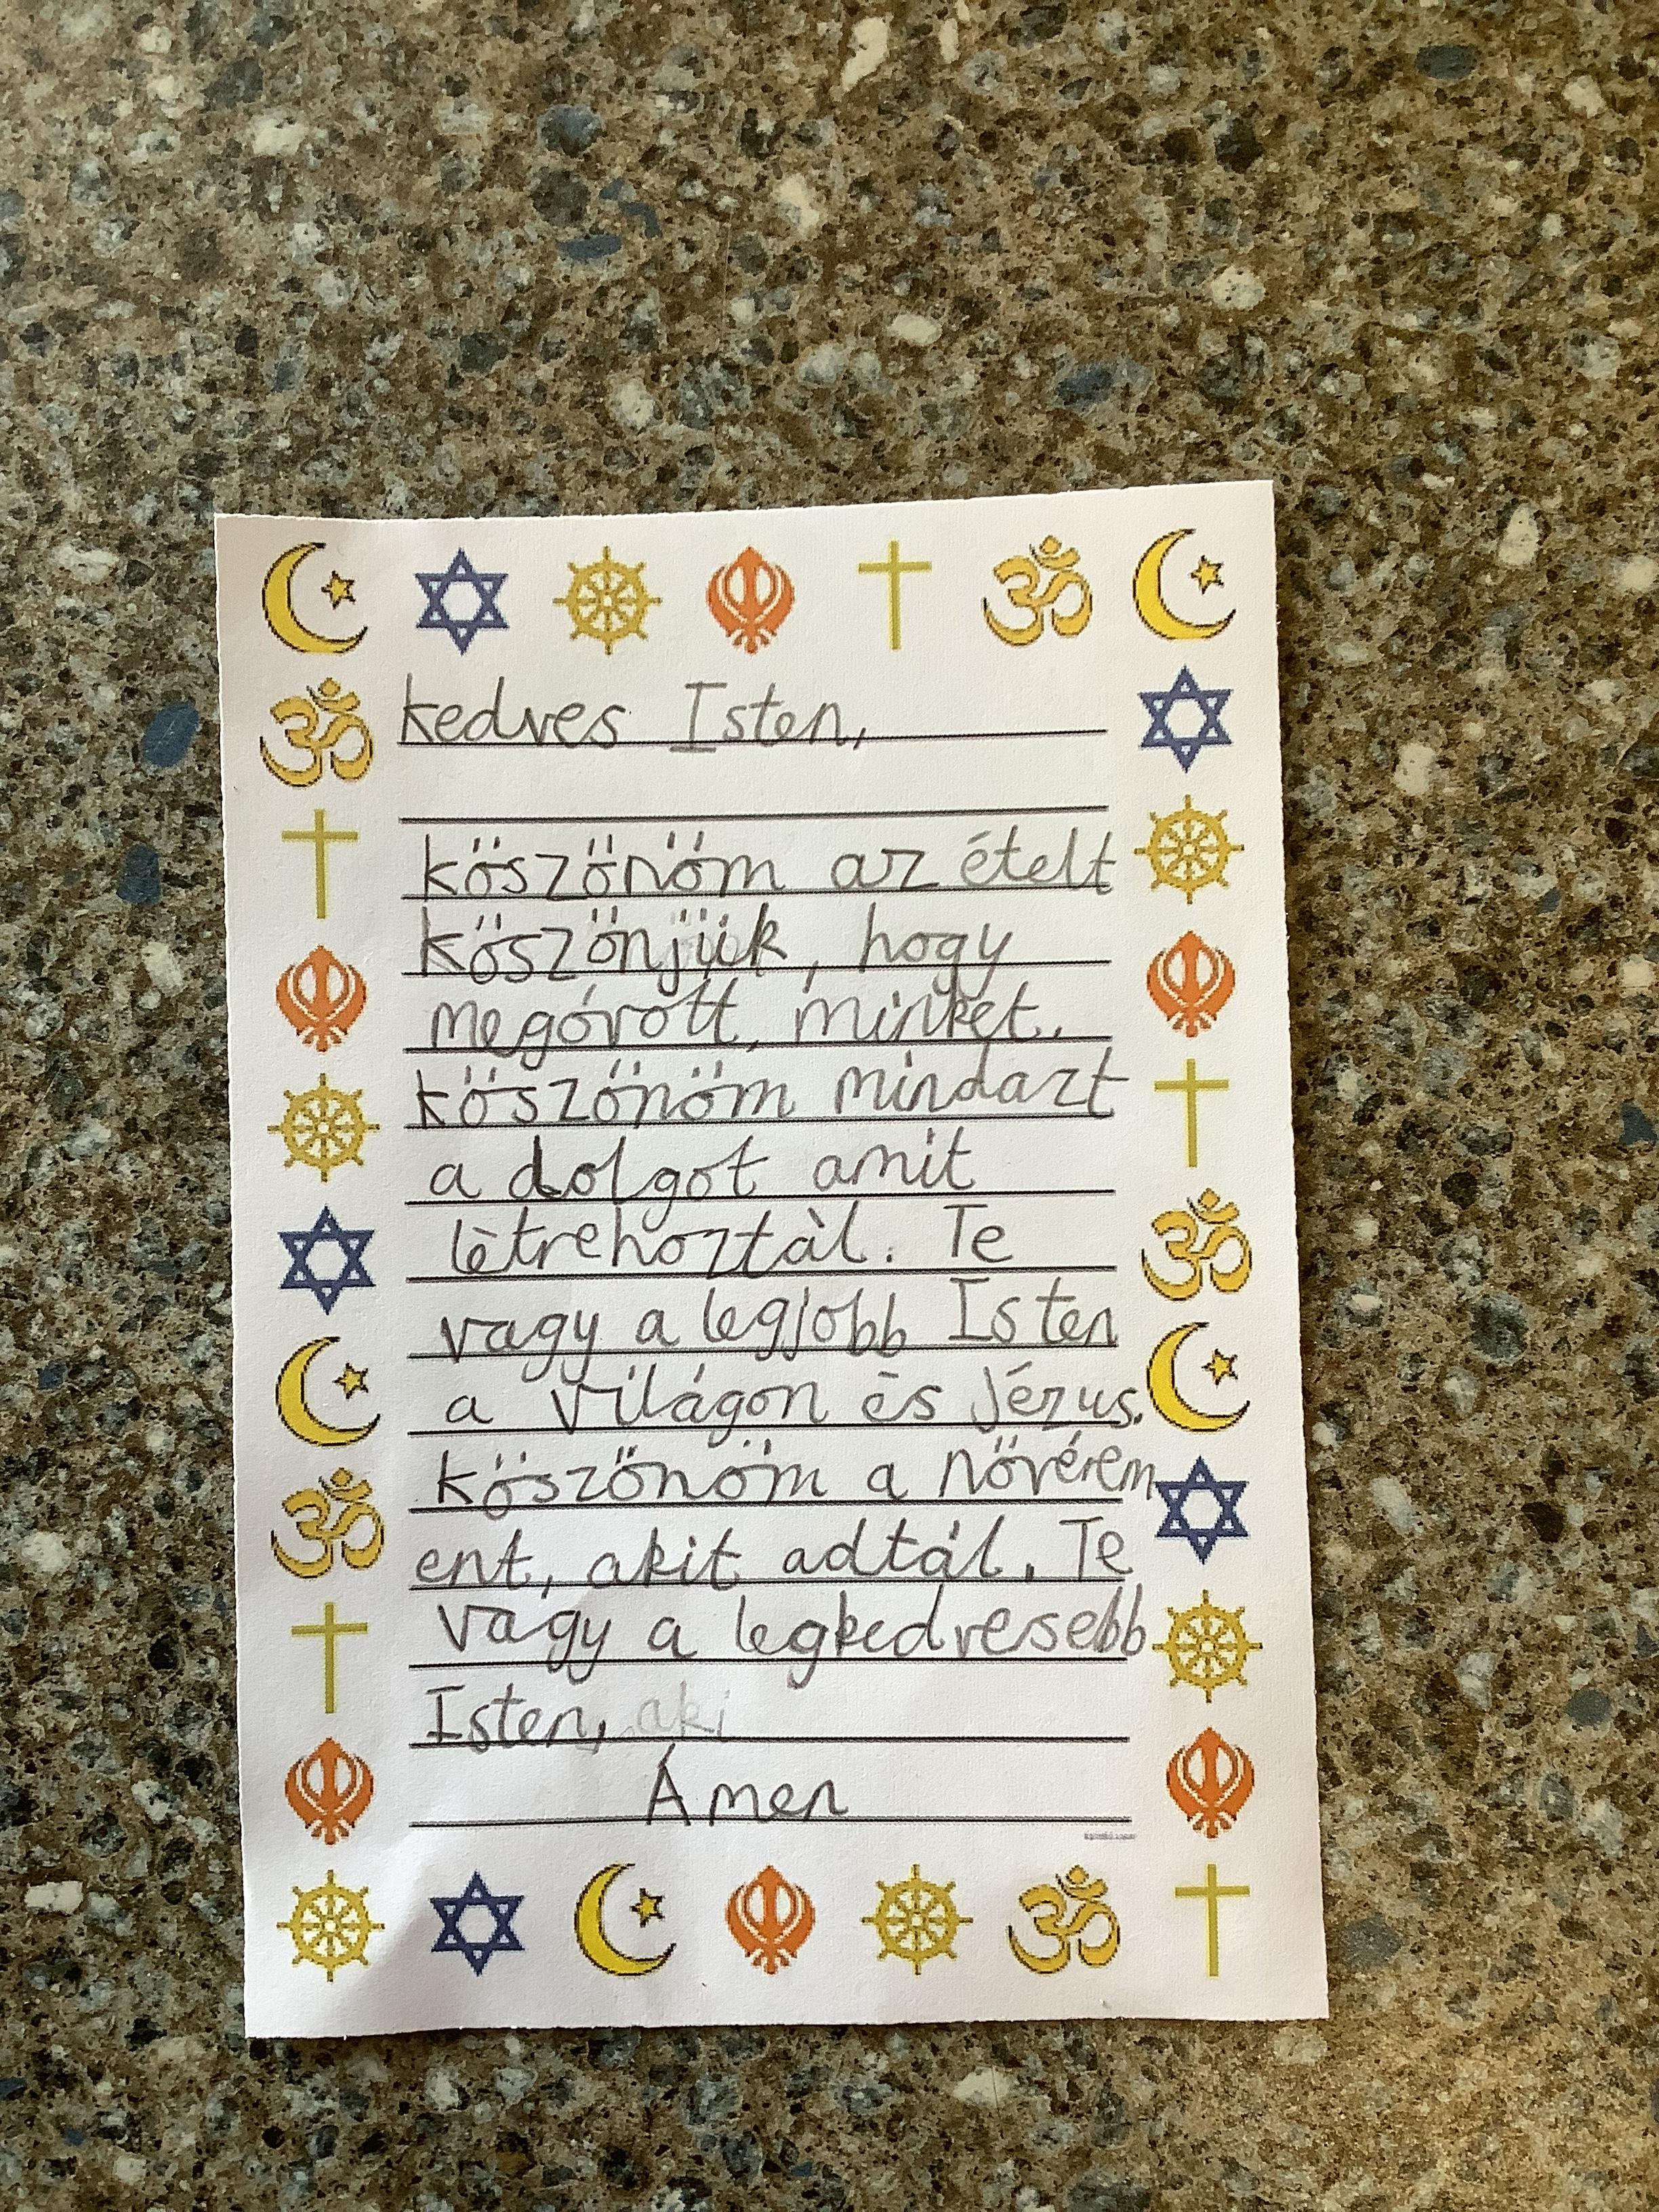 kedves Isten,
köszönöm az ételt
köszönjük, hogy
megóvott, minket.
köszönöm mindazt
a dolgot amit
lètrehoztàl. Te
vagy a legjobb Isten
a világon ès Jézus.
köszönöm a nővérem
ent, akit adtál. Te
vagy a legkedvesebb
Isten, aki
Ámen